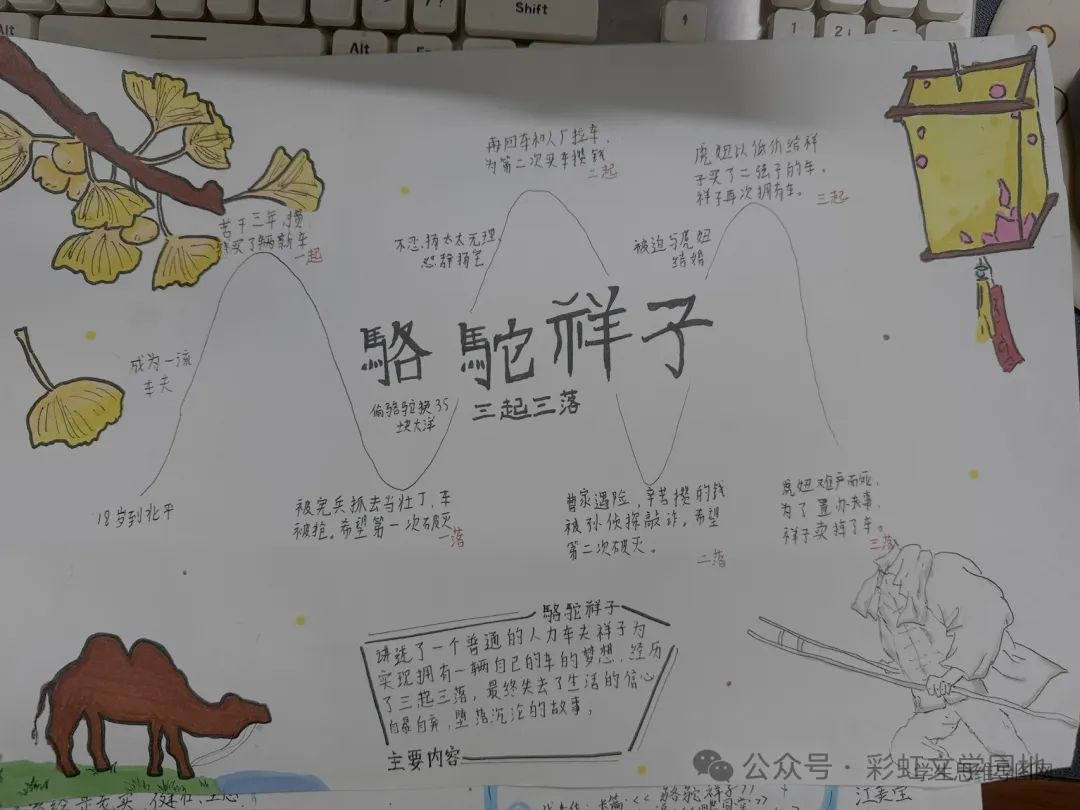 Shift
Alt
Alt
再回车和人厂拉车，
为第二次买车攒钱
二起
虎妞以低价给祥
子买了二强子的车。
祥子再次拥有车。
三起
苦干三年，攒
买了辆新车
一起
不忍杨太太无理，
怒辞杨宅
被迫与虎妞
结婚
成为一流
车夫
駱駝祥子
三起三落
偷骆驼换35
块大洋
18岁到北平
被宪兵抓去当壮丁，车
被抢。希望第一次破灭
一落
曹家遇险，辛苦攒的钱
被孙侦探敲诈。希望
第二次破灭。
二落
虎妞难产而死，
为了置办丧事，
祥子卖掉了车。
三落
駱駝祥子
讲述了一个普通的人力车夫祥子为
实现拥有一辆自己的车的梦想，经历
了三起三落，最终失去了生活的信心
自暴自弃，堕落沉沦的故事，
主要内容
公众号·彩虹文学园地